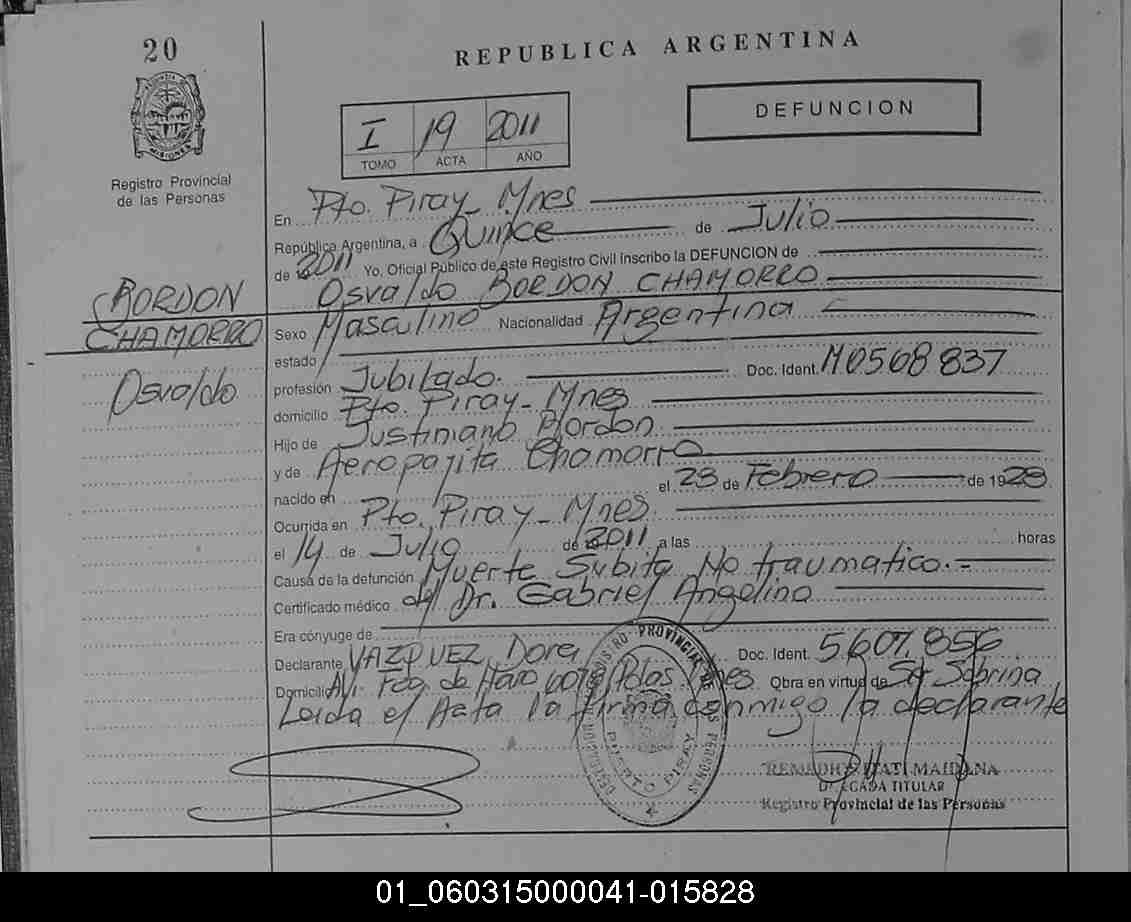 20
REPUBLICA ARGENTINA
DEFUNCION
I 19 2011
TOMO ACTA AÑO
MISIONES
Registro Provincial
de las Personas
En Pto. Piray - Mnes
República Argentina, a Quince de Julio
de 2011 Yo, Oficial Público de este Registro Civil Inscribo la DEFUNCION de
BORDON
CHAMORRO
Osvaldo
Osvaldo BORDON CHAMORRO
Sexo Masculino Nacionalidad Argentina
estado
profesión Jubilado. Doc. Ident. M0508 837
domicilio Pto. Piray - Mnes
Hijo de Justiniano Bordon
y de Aeropajita Chamorro
nacido en el 23 de Febrero de 1928
Ocurrida en Pto. Piray - Mnes.
el 14 de Julio de 2011 a las horas
Causa de la defunción Muerte Subita No traumatico.-
Certificado médico del Dr. Gabriel Angelino
Era cónyuge de
Declarante VAZQUEZ, Dora Doc. Ident. 5.607.856
Domicilio Av. Fdo. de Haro Pdas Mnes Obra en virtud de Sabrina
Leida el Acta la firma conmigo la declarante
REGISTRO PROVINCIAL DE LAS PERSONAS
PUERTO PIRAY
MAIDANA
DELEGADA TITULAR
Registro Provincial de las Personas
01_060315000041-015828